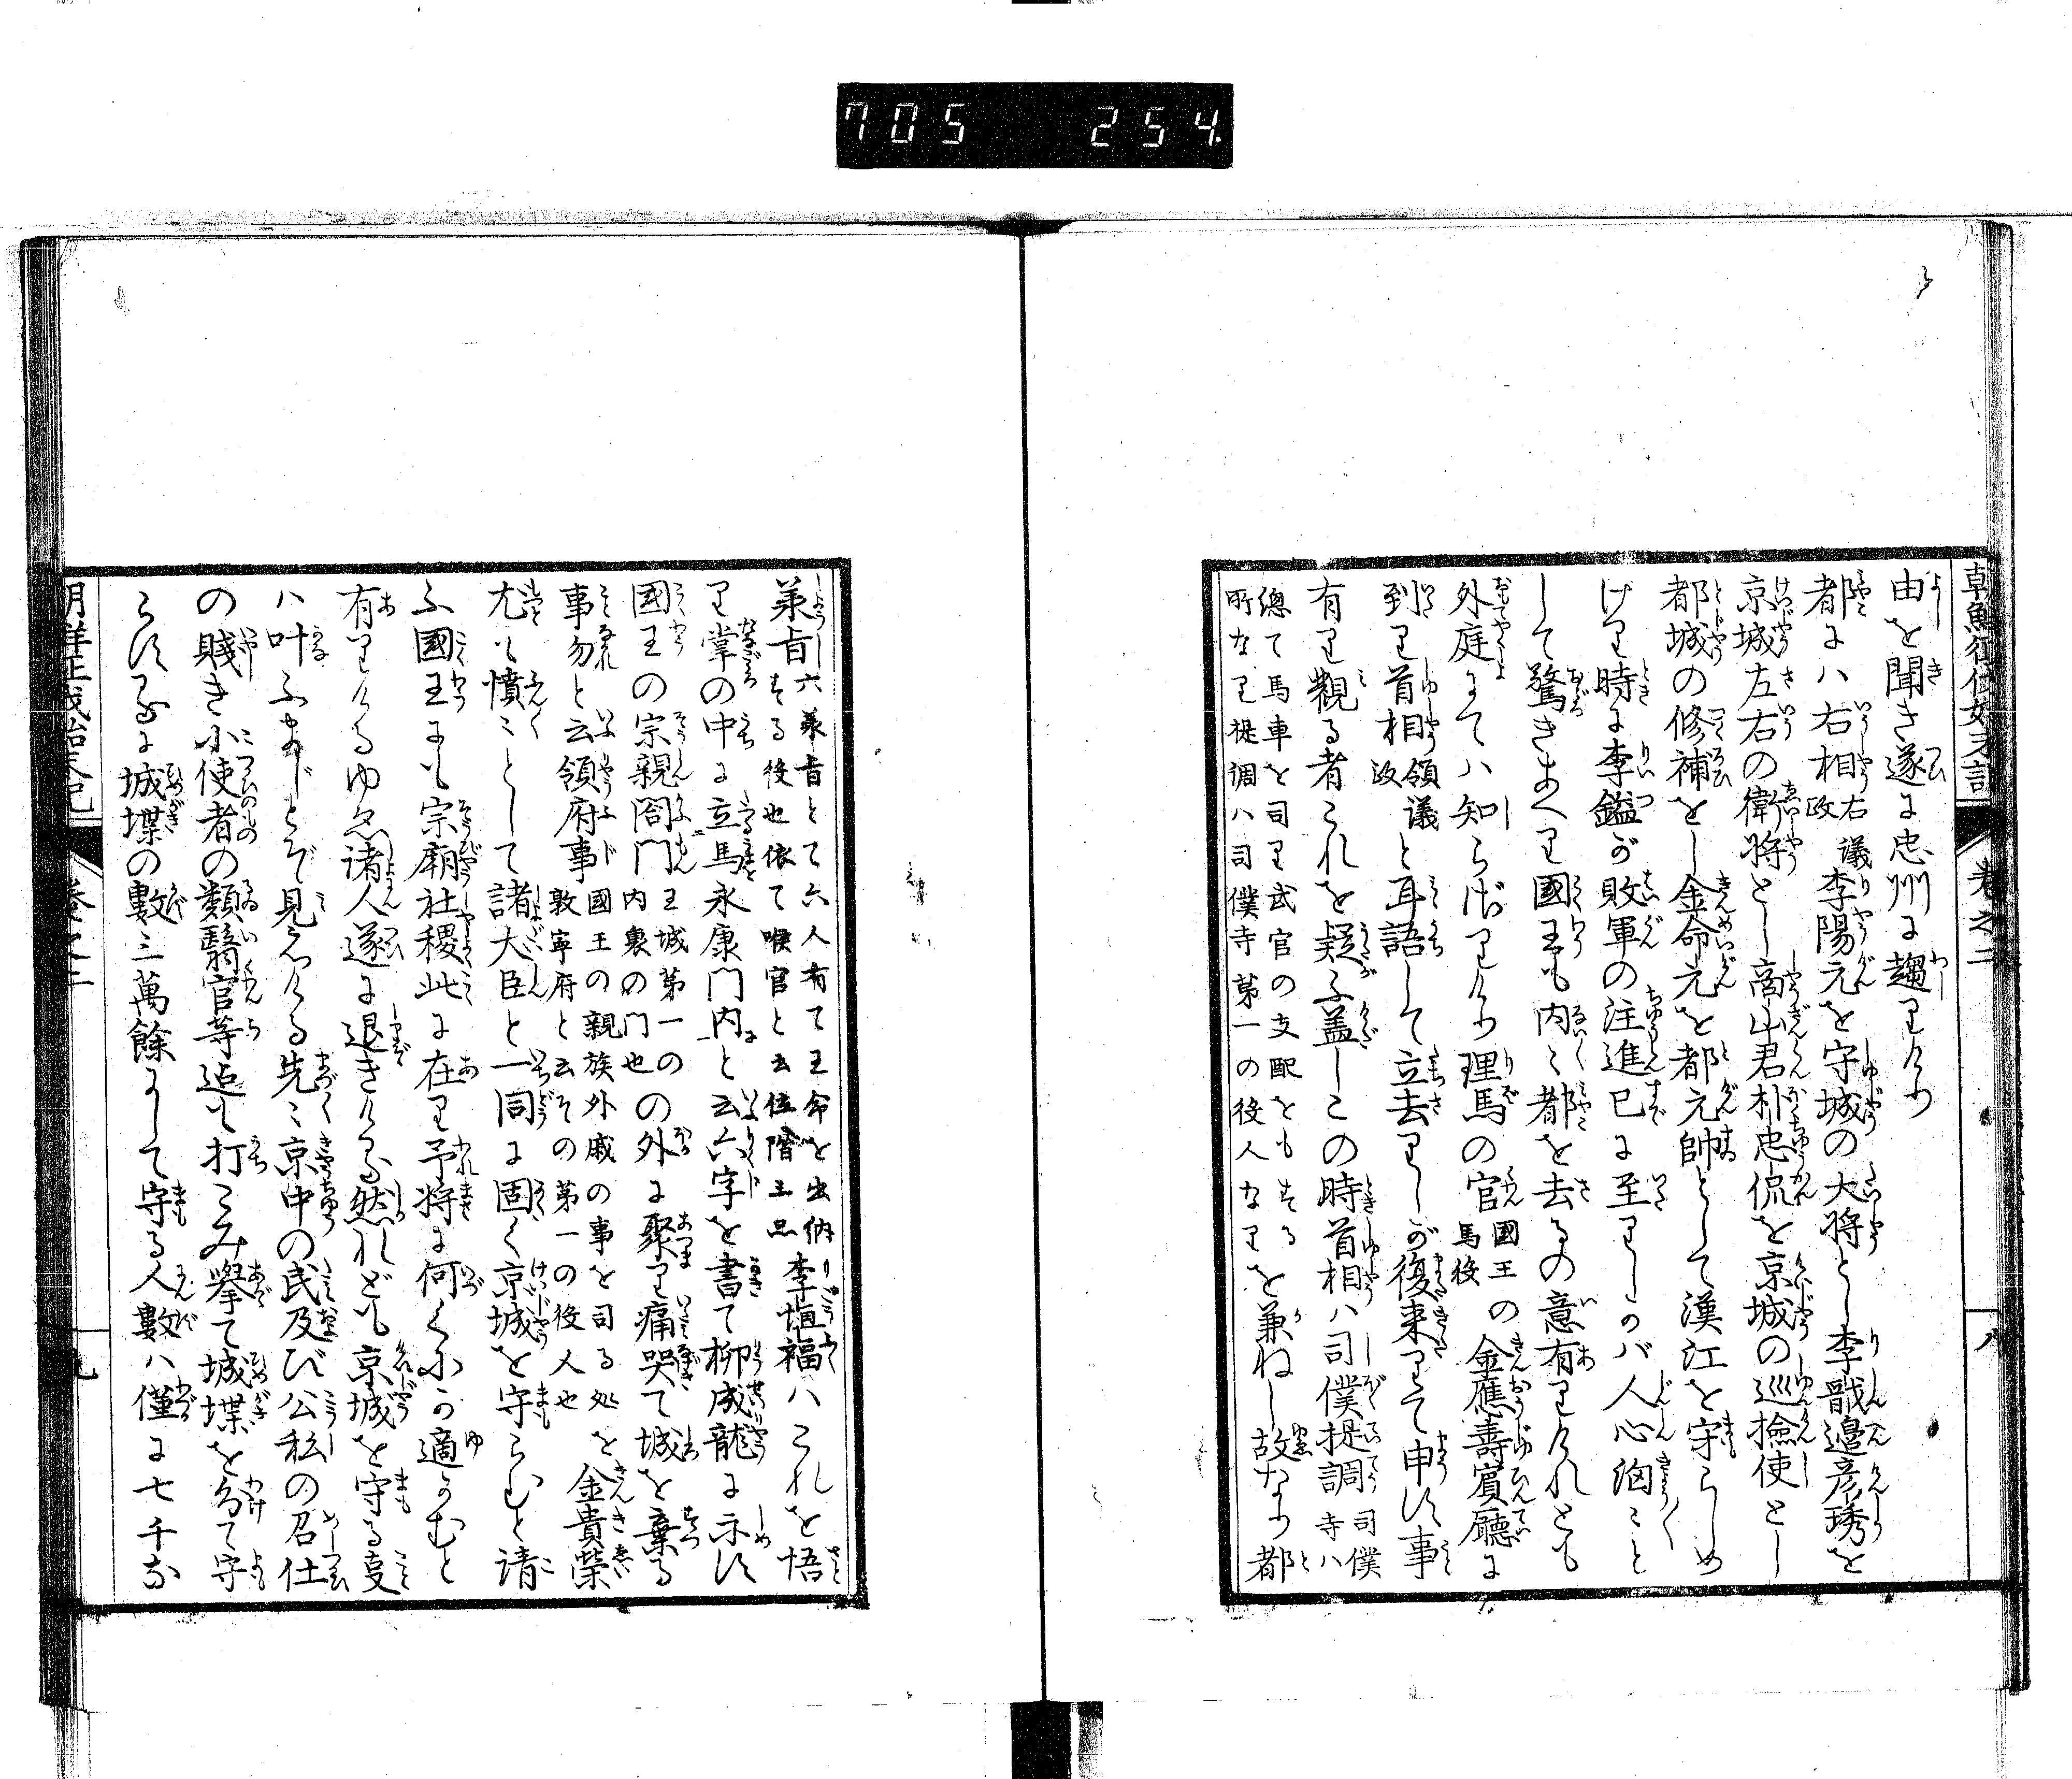 705 254
朝鮮征伐始末記 巻之二 八
由を聞き遂に忠州に趨りけり
都にハ右相右議政李陽元を守城の大将とし李戩邉彦琇を
京城左右の衛将とし商山君朴忠侃を京城の巡撿使とし
都城の修補をし金命元を都元帥として漢江を守らしめ
けり時に李鎰が敗軍の注進已に至りしかバ人心洶ゝと
して驚きまへり國王も内ゝ都を去るの意有りけれとも
外庭にてハ知らざりけり理馬の官國王の馬役金應壽賓廳に
到り首相領議政と耳語して立去りしが復来りて申す事
有り觀る者これを疑ふ蓋しこの時首相ハ司僕提調司僕寺ハ
總て馬車を司り武官の支配をもする
所なり提調ハ司僕寺第一の役人なりを兼ねし故なり都
承旨六承旨とて六人有て王命を出納
する役也依て喉官と云位階三品李𡊠福ハこれを悟
り掌の中に立馬永康門内と云六字を書て柳成龍に示す
國王の宗親閤門王城第一の内裏の門也の外に聚り痛哭て城を棄る
事勿と云領府事國王の親族外戚の事を司る処を
敦寧府と云その第一の役人也金貴榮
尤も憤ゝとして諸大臣と一同に固く京城を守らむと請
ふ國王にも宗廟社稷此に在り予将に何くにか適かむと
有りけるゆゑ諸人遂に退きける然れども京城を守る事
ハ叶ふまじとぞ見えける先ゝ京中の民及び公私の召仕
の賤き小使者の類醫官等迠も打こみ擧て城堞を分て守
らするに城堞の數三萬餘にして守る人數ハ僅に七千な
朝鮮征伐始末記 巻之二 九